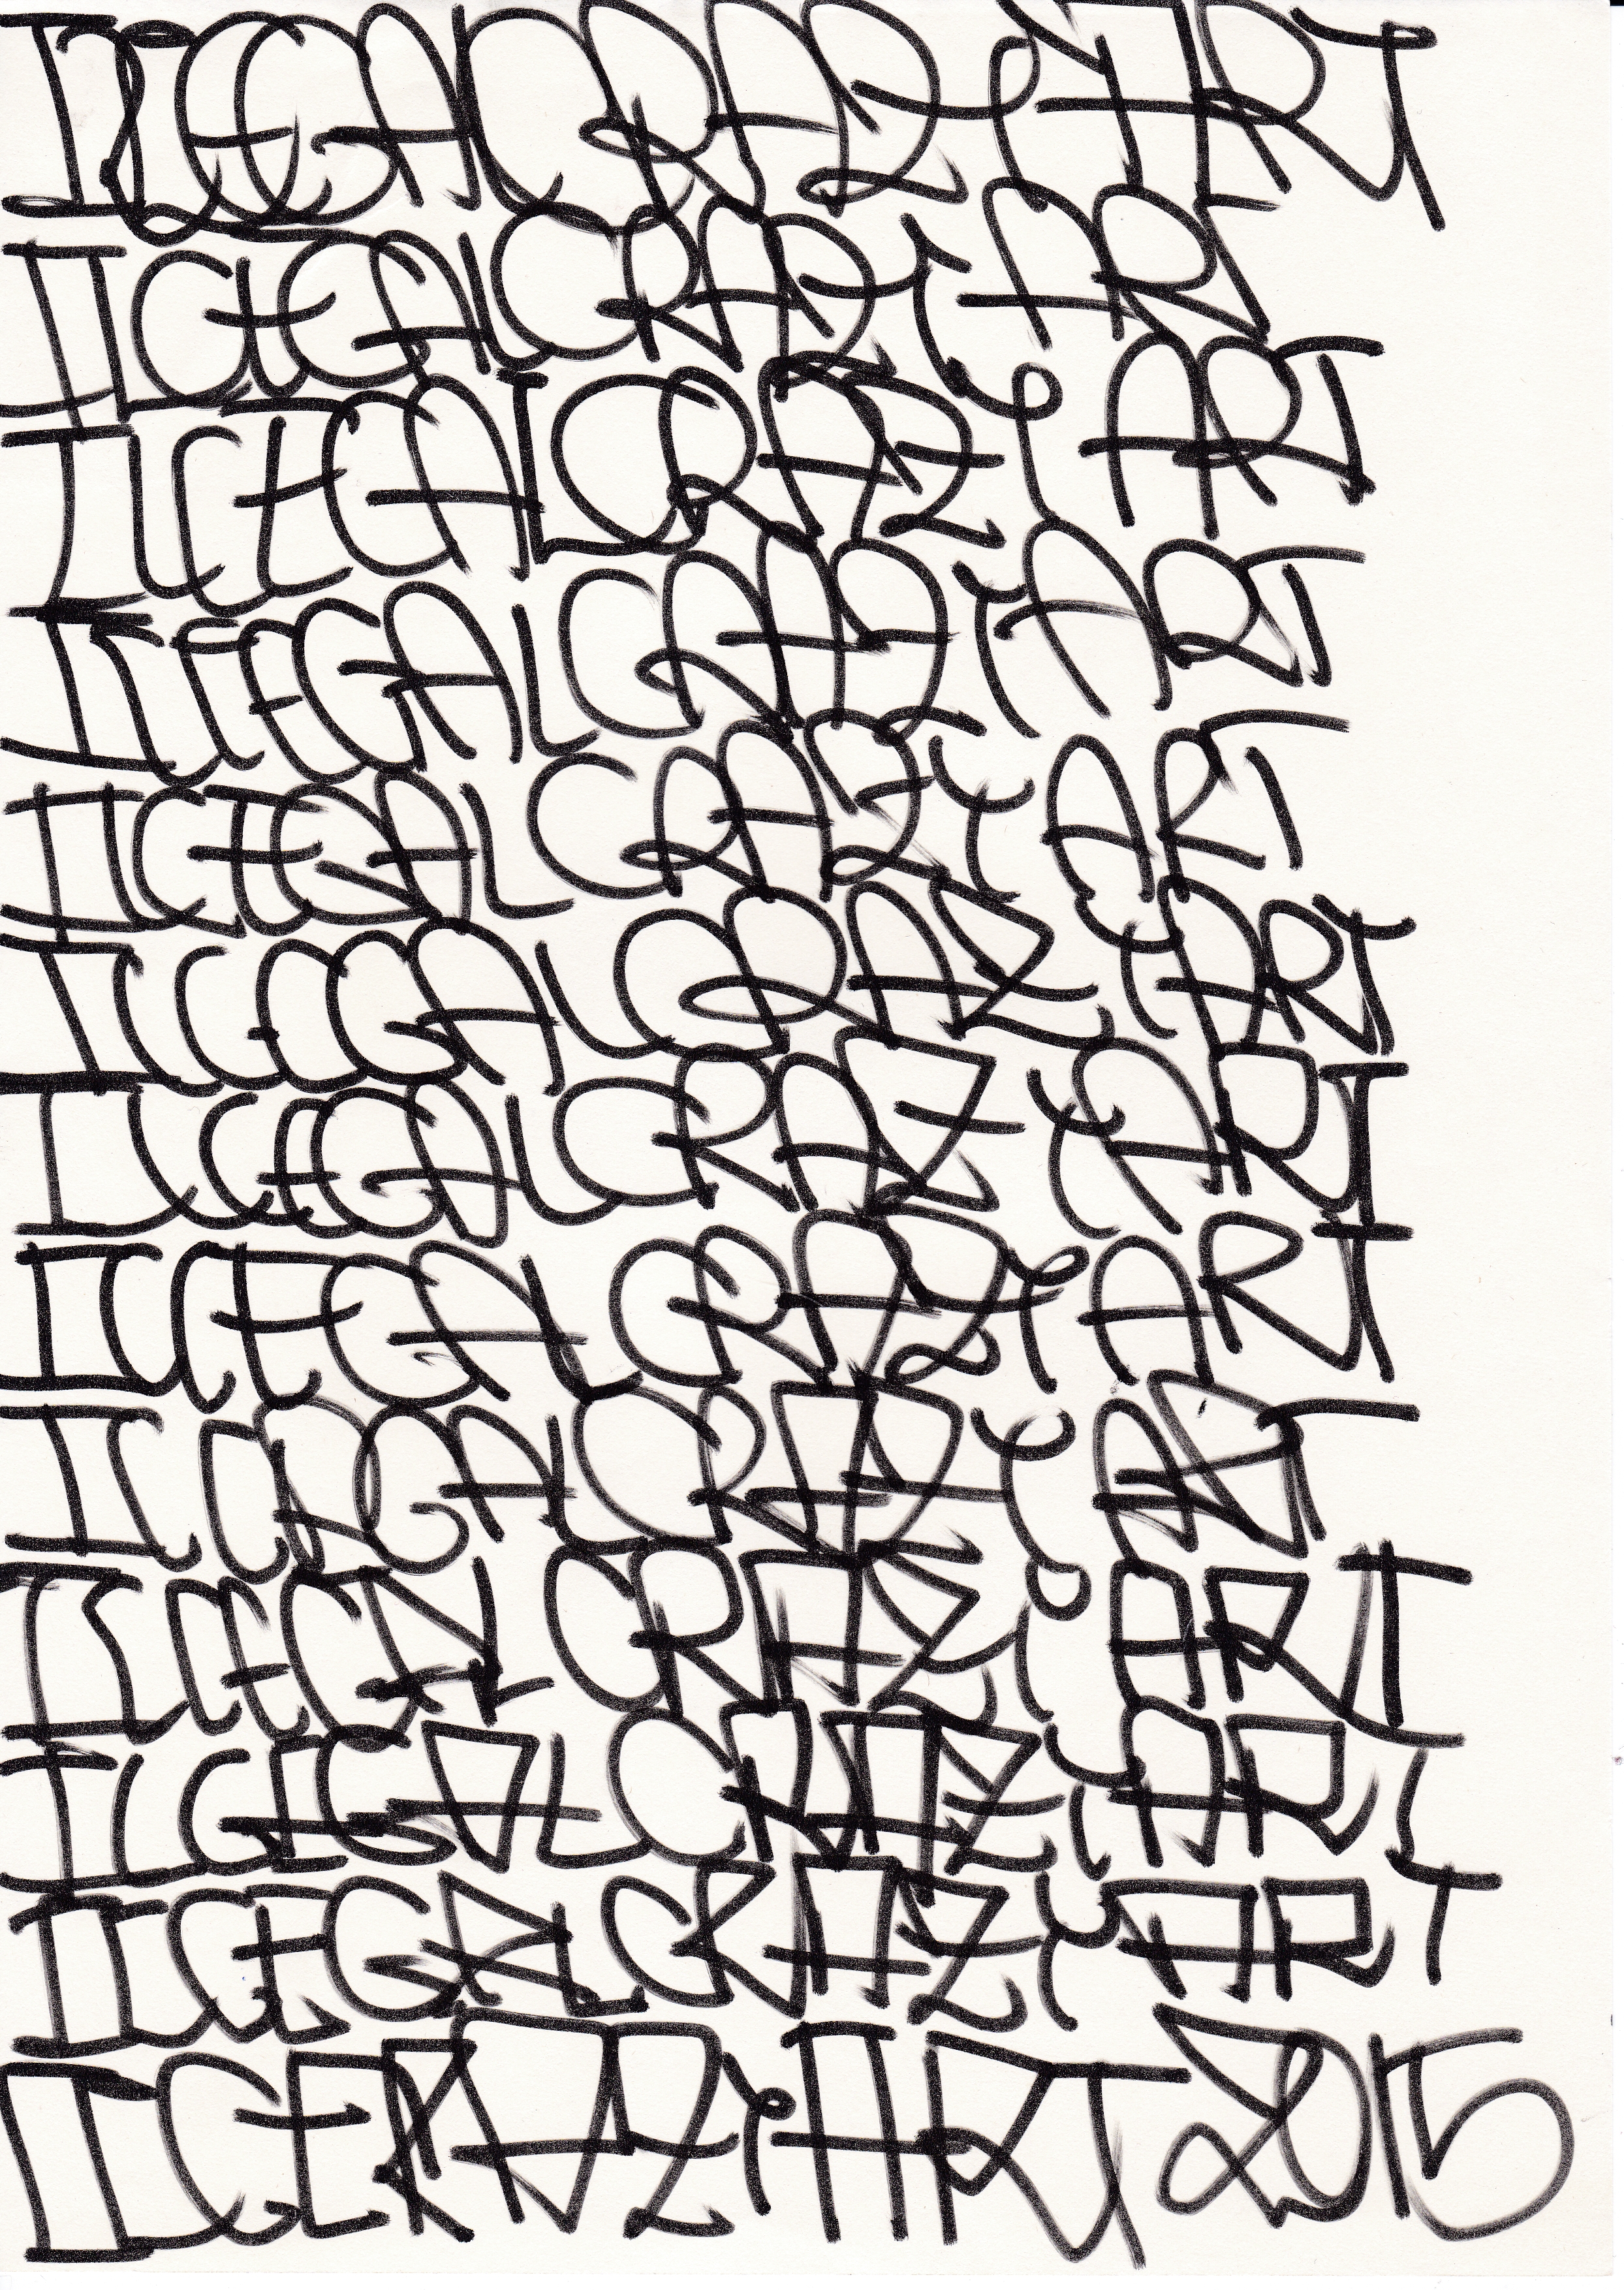 ILLEGAL CRAZY ART
ILLEGAL CRAZY ART
ILLEGAL CRAZY ART
ILLEGAL CRAZY ART
ILLEGAL CRAZY ART
ILLEGAL CRAZY ART
ILLEGAL CRAZY ART
ILLEGAL CRAZY ART
ILLEGAL CRAZY ART
ILLEGAL CRAZY ART
ILLEGAL CRAZY ART
ILLEGAL CRAZY ART
ART 2015